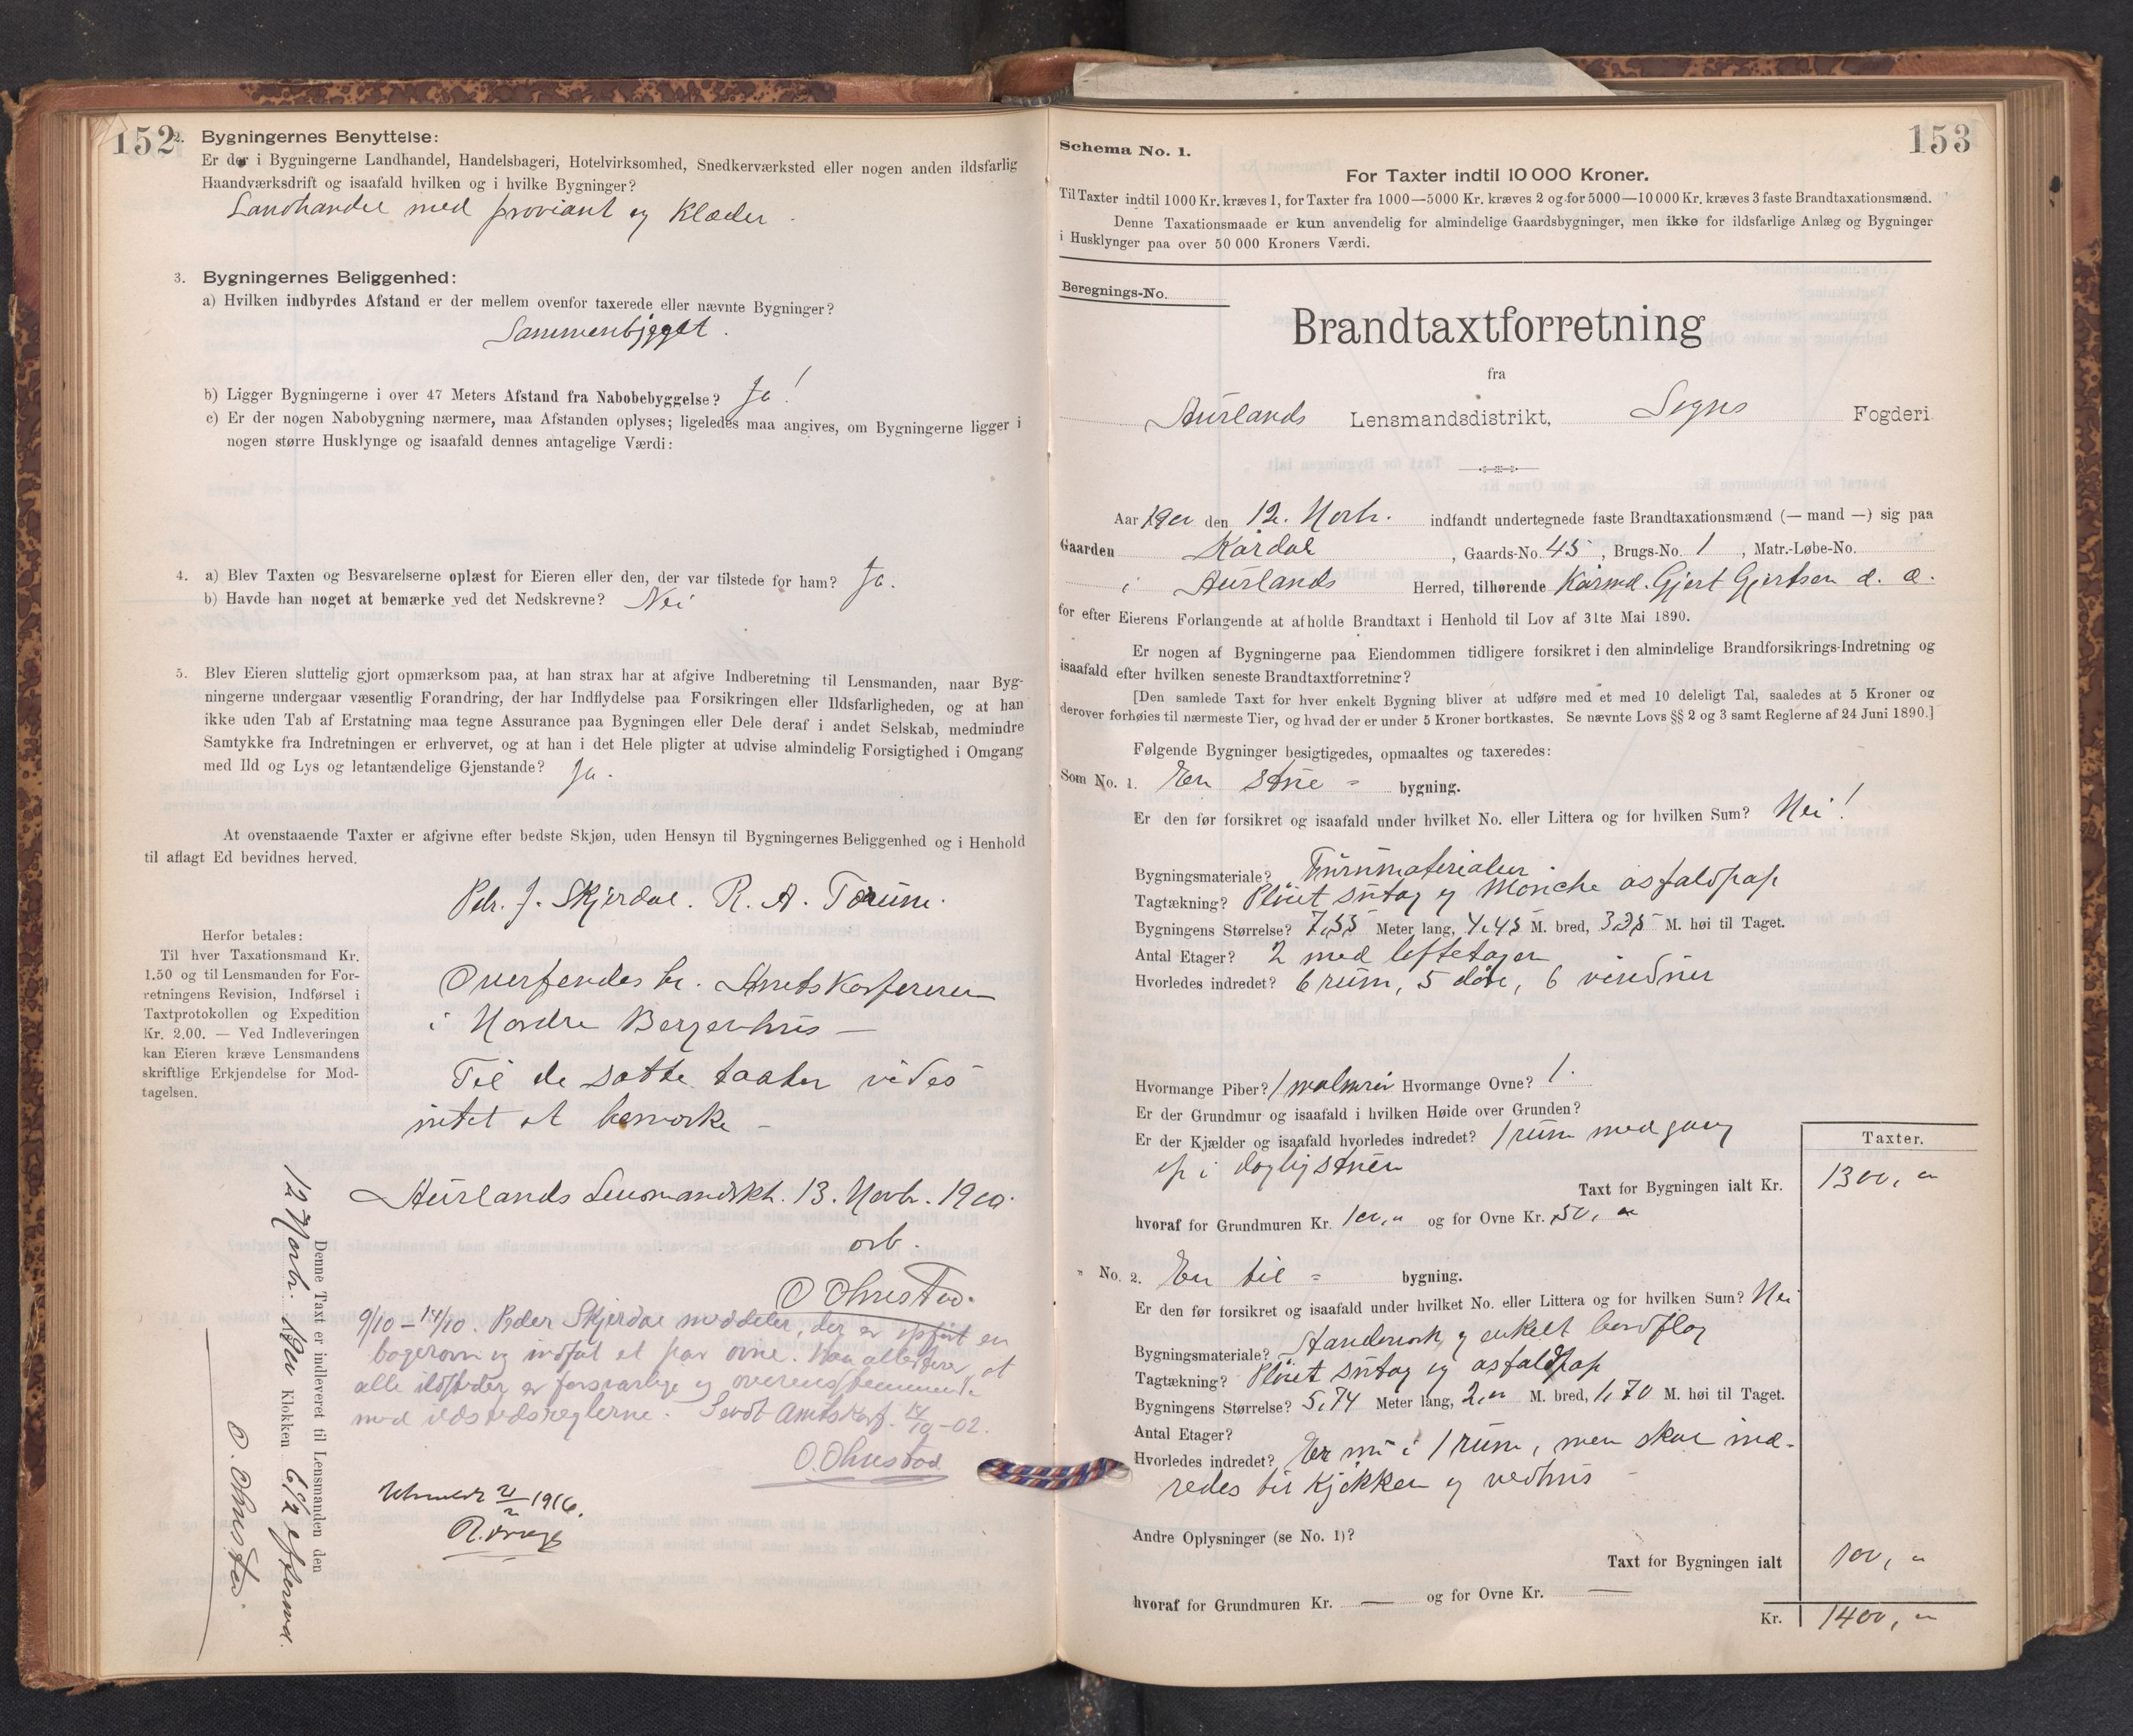 152
2. Bygningernes Benyttelse:
Er der i Bygningerne Landhandel, Handelsbageri, Hotelvirksomhed, Snedkerværksted eller nogen anden ildsfarlig
Haandværksdrift og isaafald hvilken og i hvilke Bygninger?
Landhandel med proviant og Klæder.
3. Bygningernes Beliggenhed:
a) Hvilken indbyrdes Afstand er der mellem ovenfor taxerede eller nævnte Bygninger?
Sammenbygget.
b) Ligger Bygningerne i over 47 Meters Afstand fra Nabobebyggelse? Ja!
c) Er der nogen Nabobygning nærmere, maa Afstanden oplyses; ligeledes maa angives, om Bygningerne ligger i
nogen større Husklynge og isaafald dennes antagelige Værdi:
4. a) Blev Taxten og Besvarelserne oplæst for Eieren eller den, der var tilstede for ham? Ja.
b) Havde han noget at bemærke ved det Nedskrevne? Nei
5. Blev Eieren sluttelig gjort opmærksom paa, at han strax har at afgive Indberetning til Lensmanden, naar Byg-
ningerne undergaar væsentlig Forandring, der har Indflydelse paa Forsikringen eller Ildsfarligheden, og at han
ikke uden Tab af Erstatning maa tegne Assurance paa Bygningen eller Dele deraf i andet Selskab, medmindre
Samtykke fra Indretningen er erhvervet, og at han i det Hele pligter at udvise almindelig Forsigtighed i Omgang
med Ild og Lys og letantændelige Gjenstande? Ja.
At ovenstaaende Taxter er afgivne efter bedste Skjøn, uden Hensyn til Bygningernes Beliggenhed og i Henhold
til aflagt Ed bevidnes herved.
Pdr. J. Skjerdal. R. A. Tørum.
Herfor betales:
Til hver Taxationsmand Kr.
1.50 og til Lensmanden for For-
retningens Revision, Indførsel i
Taxtprotokollen og Expedition
Kr. 2.00. — Ved Indleveringen
kan Eieren kræve Lensmandens
skriftlige Erkjendelse for Mod-
tagelsen.
Oversendes hr. Amtskasserer
i Nordre Bergenhus —
Til de satte taxter vides
intet at bemærke —
Aurlands Lensmandskt. 13. Novb. 1900.
O Ohnstad.
9/10 - 14/10. Peder Skjerdal meddeler, der er opført en
bagerovn og indsat et par ovne. Han attesterer, at
alle ildsteder er forsvarlige og overensstemmende
med ildstedsreglerne. Sendt Amtskass. 14/10-02.
O. Ohnstad
1916.
Denne Taxt er indleveret til Lensmanden den
12 Novbr. 1900 Klokken 6 1/2 eftermd.
O. Ohnstad
153
Schema No. 1.
For Taxter indtil 10 000 Kroner.
Til Taxter indtil 1000 Kr. kræves 1, for Taxter fra 1000—5000 Kr. kræves 2 og for 5000—10 000 Kr. kræves 3 faste Brandtaxationsmænd.
Denne Taxationsmaade er kun anvendelig for almindelige Gaardsbygninger, men ikke for ildsfarlige Anlæg og Bygninger
i Husklynger paa over 50 000 Kroners Værdi.
Beregnings-No.
Brandtaxtforretning
fra
Aurlands Lensmandsdistrikt, Sogns Fogderi
Aar 1900 den 12. Novb. indfandt undertegnede faste Brandtaxationsmænd (— mand —) sig paa
Gaarden Kårdal, Gaards-No. 45, Brugs-No. 1, Matr.-Løbe-No.
i Aurlands Herred, tilhørende Gjert Gjertsen
for efter Eierens Forlangende at afholde Brandtaxt i Henhold til Lov af 31te Mai 1890.
Er nogen af Bygningerne paa Eiendommen tidligere forsikret i den almindelige Brandforsikrings-Indretning og
isaafald efter hvilken seneste Brandtaxtforretning?
[Den samlede Taxt for hver enkelt Bygning bliver at udføre med et med 10 deleligt Tal, saaledes at 5 Kroner og
derover forhøies til nærmeste Tier, og hvad der er under 5 Kroner bortkastes. Se nævnte Lovs §§ 2 og 3 samt Reglerne af 24 Juni 1890.]
Følgende Bygninger besigtigedes, opmaaltes og taxeredes:
Som No. 1. En stue - bygning.
Er den før forsikret og isaafald under hvilket No. eller Littera og for hvilken Sum? Nei!
Bygningsmateriale? Furumaterialer.
Tagtækning? Pløiet sutag og asfaldpap
Bygningens Størrelse? 7,55 Meter lang, 4,45 M. bred, 3,35 M. høi til Taget.
Antal Etager? 2 med loftetager
Hvorledes indredet? 6 rum, 5 døre, 6 vinduer
Hvormange Piber? 1 Hvormange Ovne? 1.
Er der Grundmur og isaafald i hvilken Høide over Grunden?
Er der Kjælder og isaafald hvorledes indredet? 1 rum med gang
op i dagligstuen
Taxter.
Taxt for Bygningen ialt Kr. 1300, "
hvoraf for Grundmuren Kr. 100, " og for Ovne Kr. 50, "
" No. 2. En til = bygning.
Er den før forsikret og isaafald under hvilket No. eller Littera og for hvilken Sum? Nei
Bygningsmateriale? Standverk og enkelt bordflag
Tagtækning? Pløiet sutag og asfaldpap
Bygningens Størrelse? 5,74 Meter lang, 2,00 M. bred, 1,70 M. høi til Taget.
Antal Etager?
Hvorledes indredet? Er nu i 1 rum, men skal ind-
redes til Kjøkken og vedhus —
Andre Oplysninger (se No. 1)?
Taxt for Bygningen ialt 100, "
hvoraf for Grundmuren Kr. — og for Ovne Kr. —
Kr. 1400, "